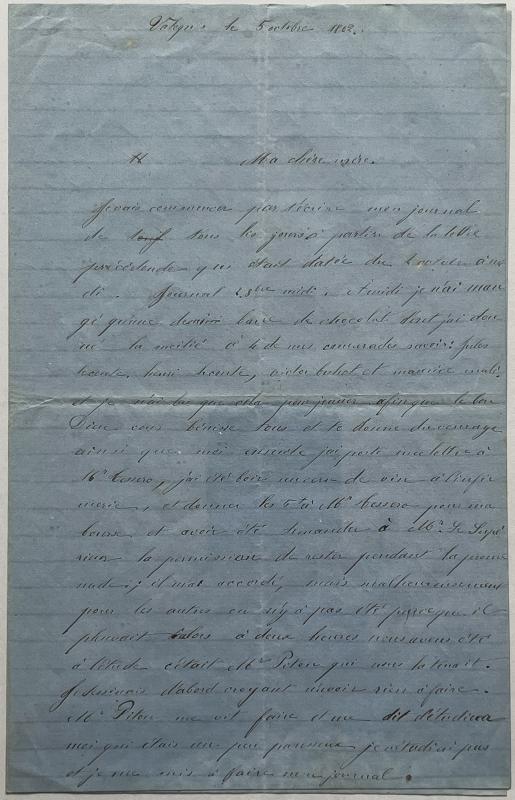 le 5 octobre 1862.
Ma chère mère.
Je vais commencer par t'écrire mon journal
de tous les jours à partir de la lettre
précédente qui était datée du 2 octobre à mi
di. Journal 2 8bre midi. A midi je n'ai man
gé qu'une barre de chocolat dont j'ai don
né la moitié à 4 de mes camarades savoir: Jules
Lecomte, henri Lecomte, victor et maurice
et je n'ai bu que cela pour jeuner afin que le bon
Dieu vous bénisse tous et te donne du courage
ainsi que moi ensuite j'ai porté une lettre à
Mr j'ai été boire un verre de vin à l'infir
merie, et donner les 5 à Mr pour ma
bourse et avoir été demander à Mr Le Supé
rieur la permission de rester pendant la prome
nade; il m'a accordé, mais malheureusement
pour les autres on n'y a pas été parce que il
pleuvait alors à deux heures nous avons été
à l'étude c'était Mr Pitou qui nous la tenait.
Je dessinais d'abord croyant n'avoir rien à faire.
Mr Pitou me vit faire et me dit d'étudier
moi qui étais un peu paresseux je n'étudiai pas
et je me mis à faire mon journal.